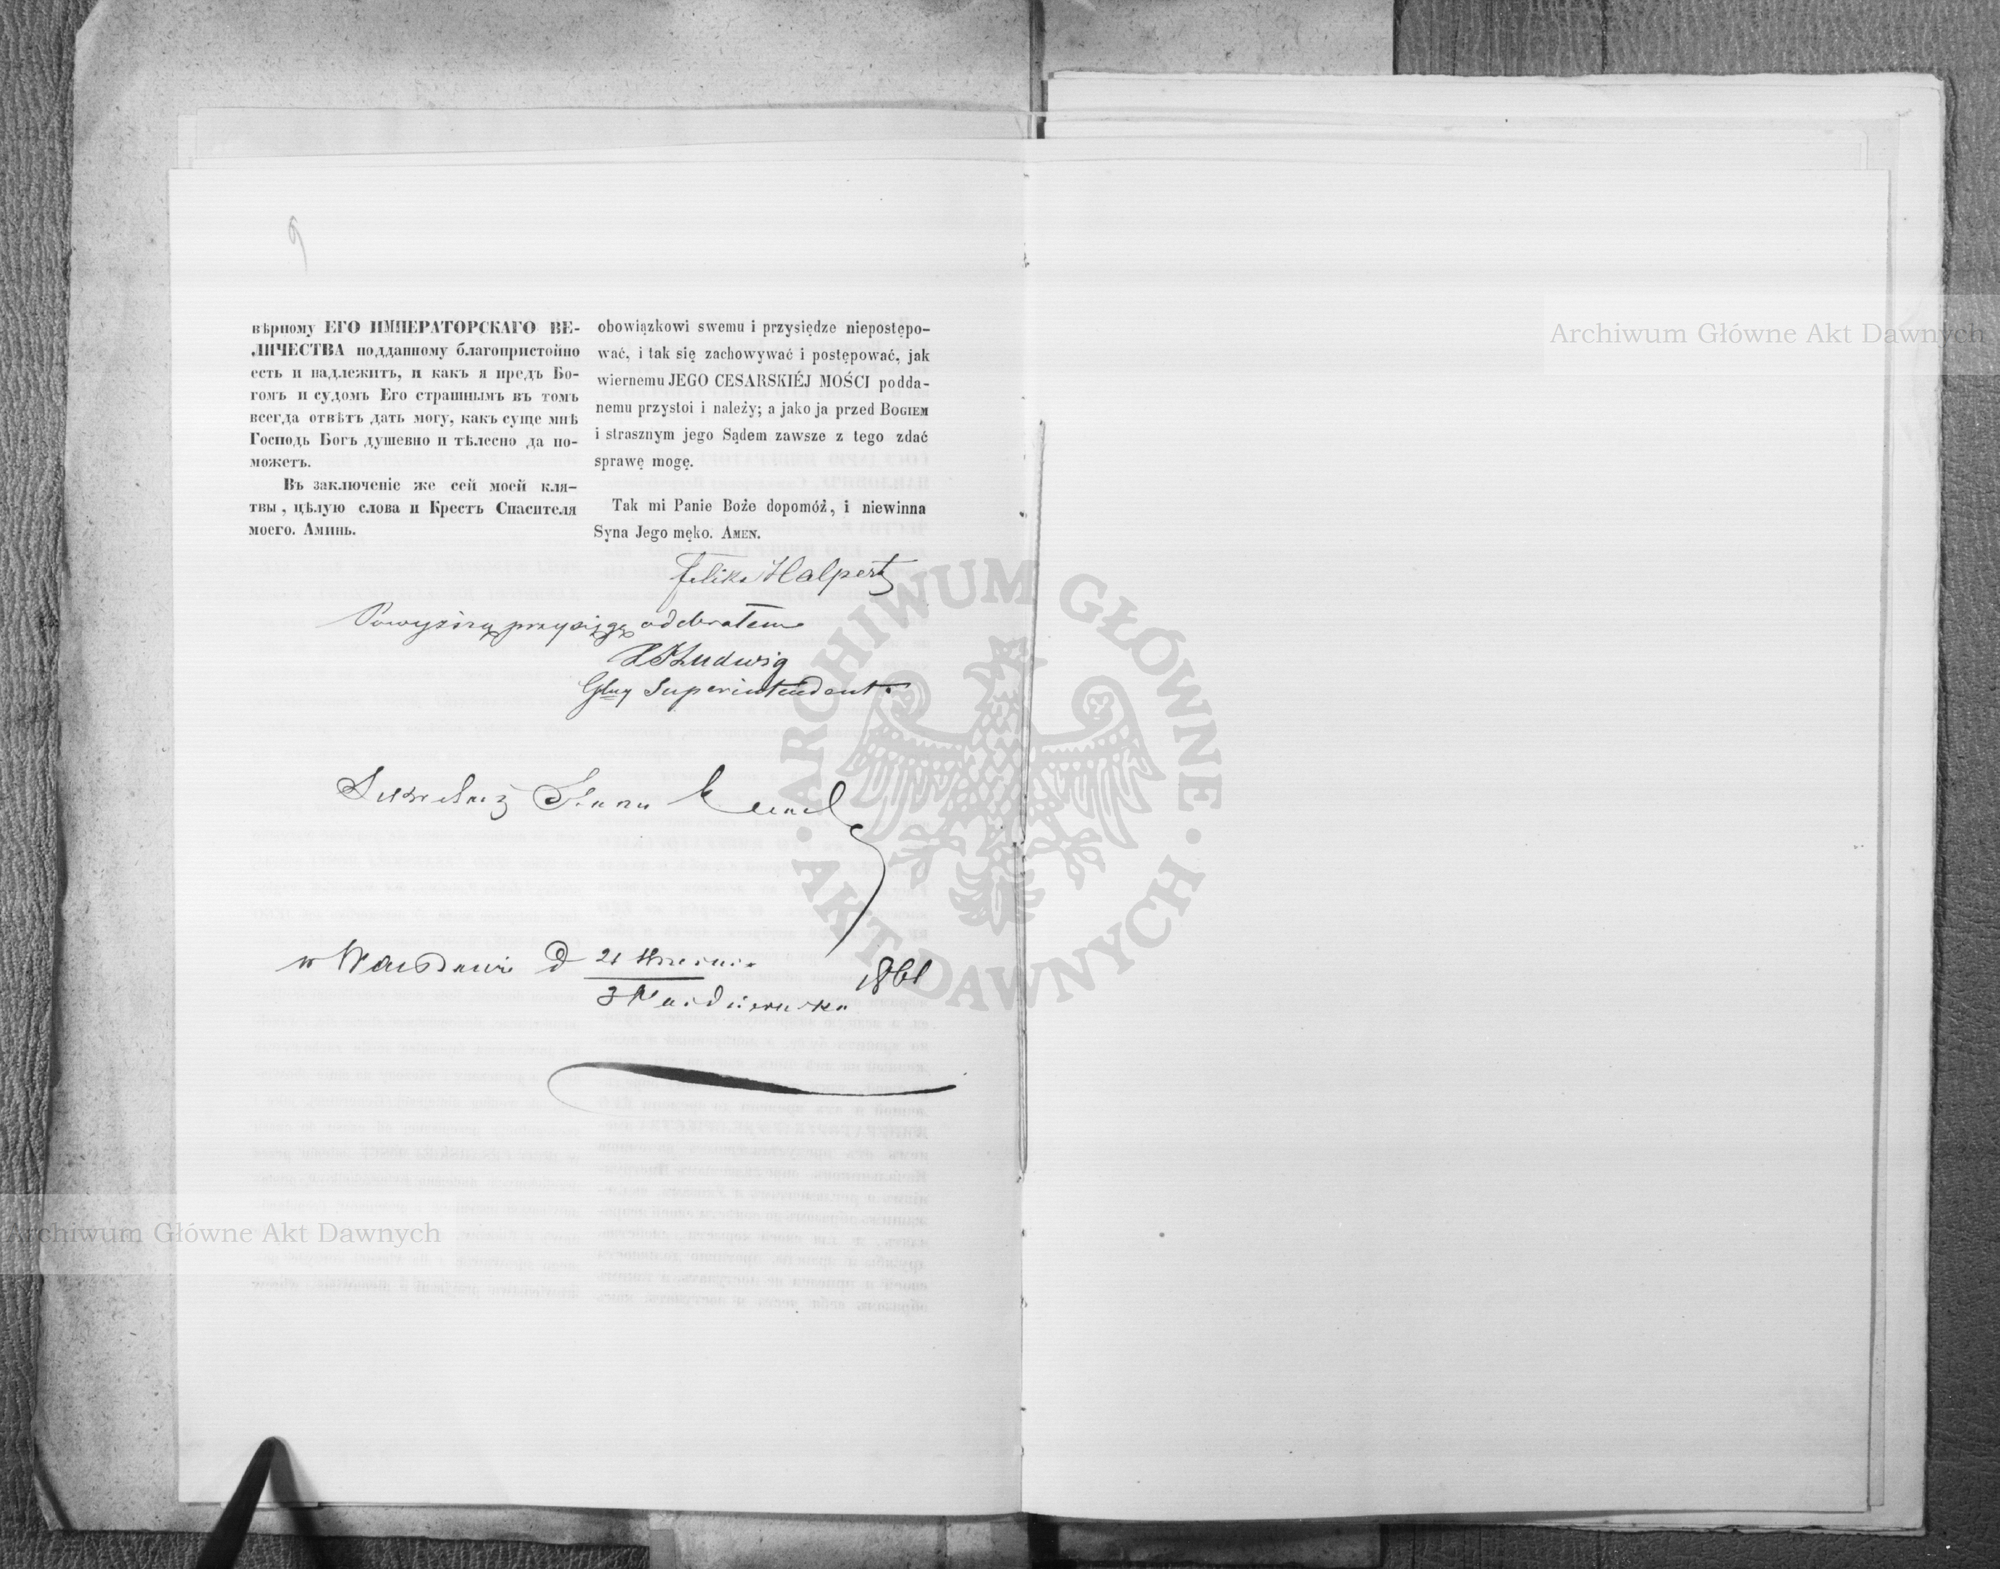 9
вѣрному ЕГО ИМПЕРАТОРСКАГО ВЕ-
ЛИЧЕСТВА подданному благопристойно
есть и надлежитъ, и какъ я предъ Бо-
гомъ и судомъ Его страшнымъ въ томъ
всегда отвѣтъ дать могу, какъ суще мнѣ
Господь Богъ душевно и тѣлесно да по-
можетъ.
Въ заключеніе же сей моей кля-
твы, цѣлую слова и Крестъ Спасителя
моего. Аминь.
obowiązkowi swemu i przysiędze niepostępo-
wać, i tak się zachowywać i postępować, jak
wiernemu JEGO CESARSKIÉJ MOŚCI podda-
nemu przystoi i należy; a jako ja przed BOGIEM
i strasznym jego Sądem zawsze z tego zdać
sprawę mogę.
Tak mi Panie Boże dopomóż, i niewinna
Syna Jego męko. AMEN.
Felix Halpert
Powyższą przysięgę odebrałem
Ludwig
Głny Superintendent.
Sekretarz Stanu
w Warszawie d 21 Września
3 Października 1861
Archiwum Główne Akt Dawnych
Archiwum Główne Akt Dawnych
ARCHIWUM GŁÓWNE
AKT DAWNYCH